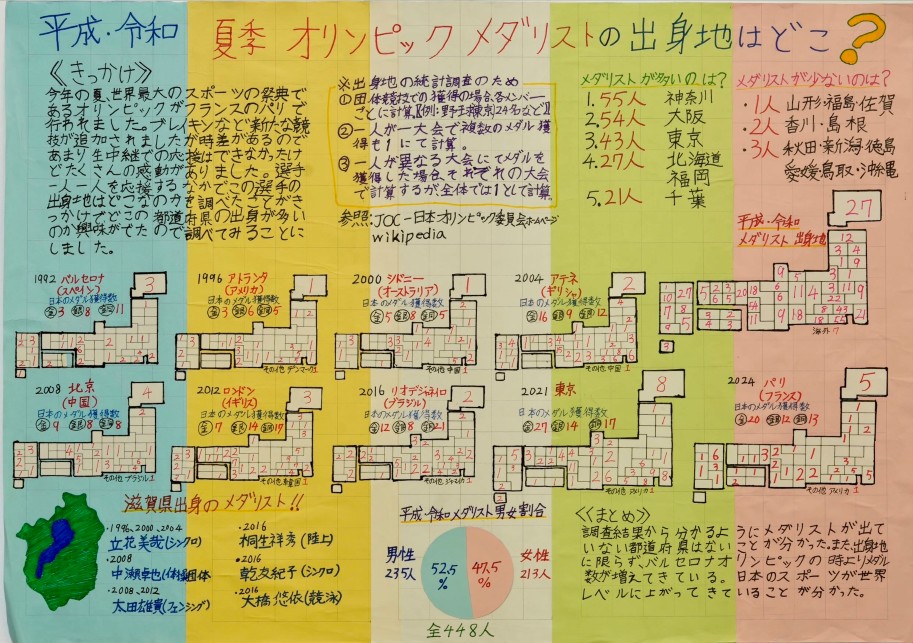 平成・令和 夏季 オリンピック メダリストの出身地はどこ?
《きっかけ》
今年の夏、世界最大のスポーツの祭典で
あるオリンピックがフランスのパリで
行われました。ブレイキンなど新たな競
技が追加されましたが時差があるので
あまり生中継での応援はできなかったけ
どたくさんの感動がありました。選手
一人一人を応援するなかでこの選手の
出身地はどこなのかを調べたことがき
っかけでどこの都道府県の出身が多い
のか興味がでたので調べてみることに
しました。
※出身地の統計調査のため
①団体競技での獲得の場合、各メンバー
ごとに計算。【(例:野球(東京)24名など)】
②一人が一大会で複数のメダル獲
得も1にて計算。
③一人が異なる大会にてメダルを
獲得した場合それぞれの大会
で計算するが全体では1として計算
参照:JOC-日本オリンピック委員会ホームページ
wikipedia
メダリストが多いのは?
1.55人 神奈川
2.54人 大阪
3.43人 東京
4.27人 北海道
福岡
5.21人 千葉
メダリストが少ないのは?
・1人 山形・福島・佐賀
・2人 香川・島根
・3人 秋田・新潟・徳島
愛媛・鳥取・沖縄
平成・令和
メダリスト出身地
27
海外 7
1992 バルセロナ
(スペイン)
日本のメダル獲得数
金3 銀8 銅11
3
1996 アトランタ
(アメリカ)
日本のメダル獲得数
金3 銀6 銅5
1
その他 デンマーク1
2000 シドニー
(オーストラリア)
日本のメダル獲得数
金5 銀8 銅5
1
その他 中国 1
2004 アテネ
(ギリシャ)
日本のメダル獲得数
金16 銀9 銅12
2
その他 中国 1
2008 北京
(中国)
日本のメダル獲得数
金9 銀8 銅8
4
その他 ブラジル1
2012 ロンドン
(イギリス)
日本のメダル獲得数
金7 銀14 銅17
3
その他 韓国1
2016 リオデジャネイロ
(ブラジル)
日本のメダル獲得数
金12 銀8 銅21
2
その他 ジャマイカ1
2021 東京
日本のメダル獲得数
金27 銀14 銅17
8
その他 アメリカ1
2024 パリ
(フランス)
日本のメダル獲得数
金20 銀12 銅13
5
その他 アメリカ 1
滋賀県出身のメダリスト!!
・1996、2000、2004
立花美哉(シンクロ)
・2008
中瀬卓也(体操団体)
・2008、2012
太田雄貴(フェンシング)
・2016
桐生祥秀(陸上)
・2016
乾友紀子(シンクロ)
・2016
大橋悠依(競泳)
平成・令和メダリスト男女割合
男性
235人
52.5
%
47.5
%
女性
213人
全448人
《まとめ》
調査結果から分かるようにメダリストが出て
いない都道府県はないことが分かった。また、出身地
に限らず、バルセロナオリンピックの時よりメダル
数が増えてきている。日本のスポーツが世界
レベルに上がってきていることが分かった。